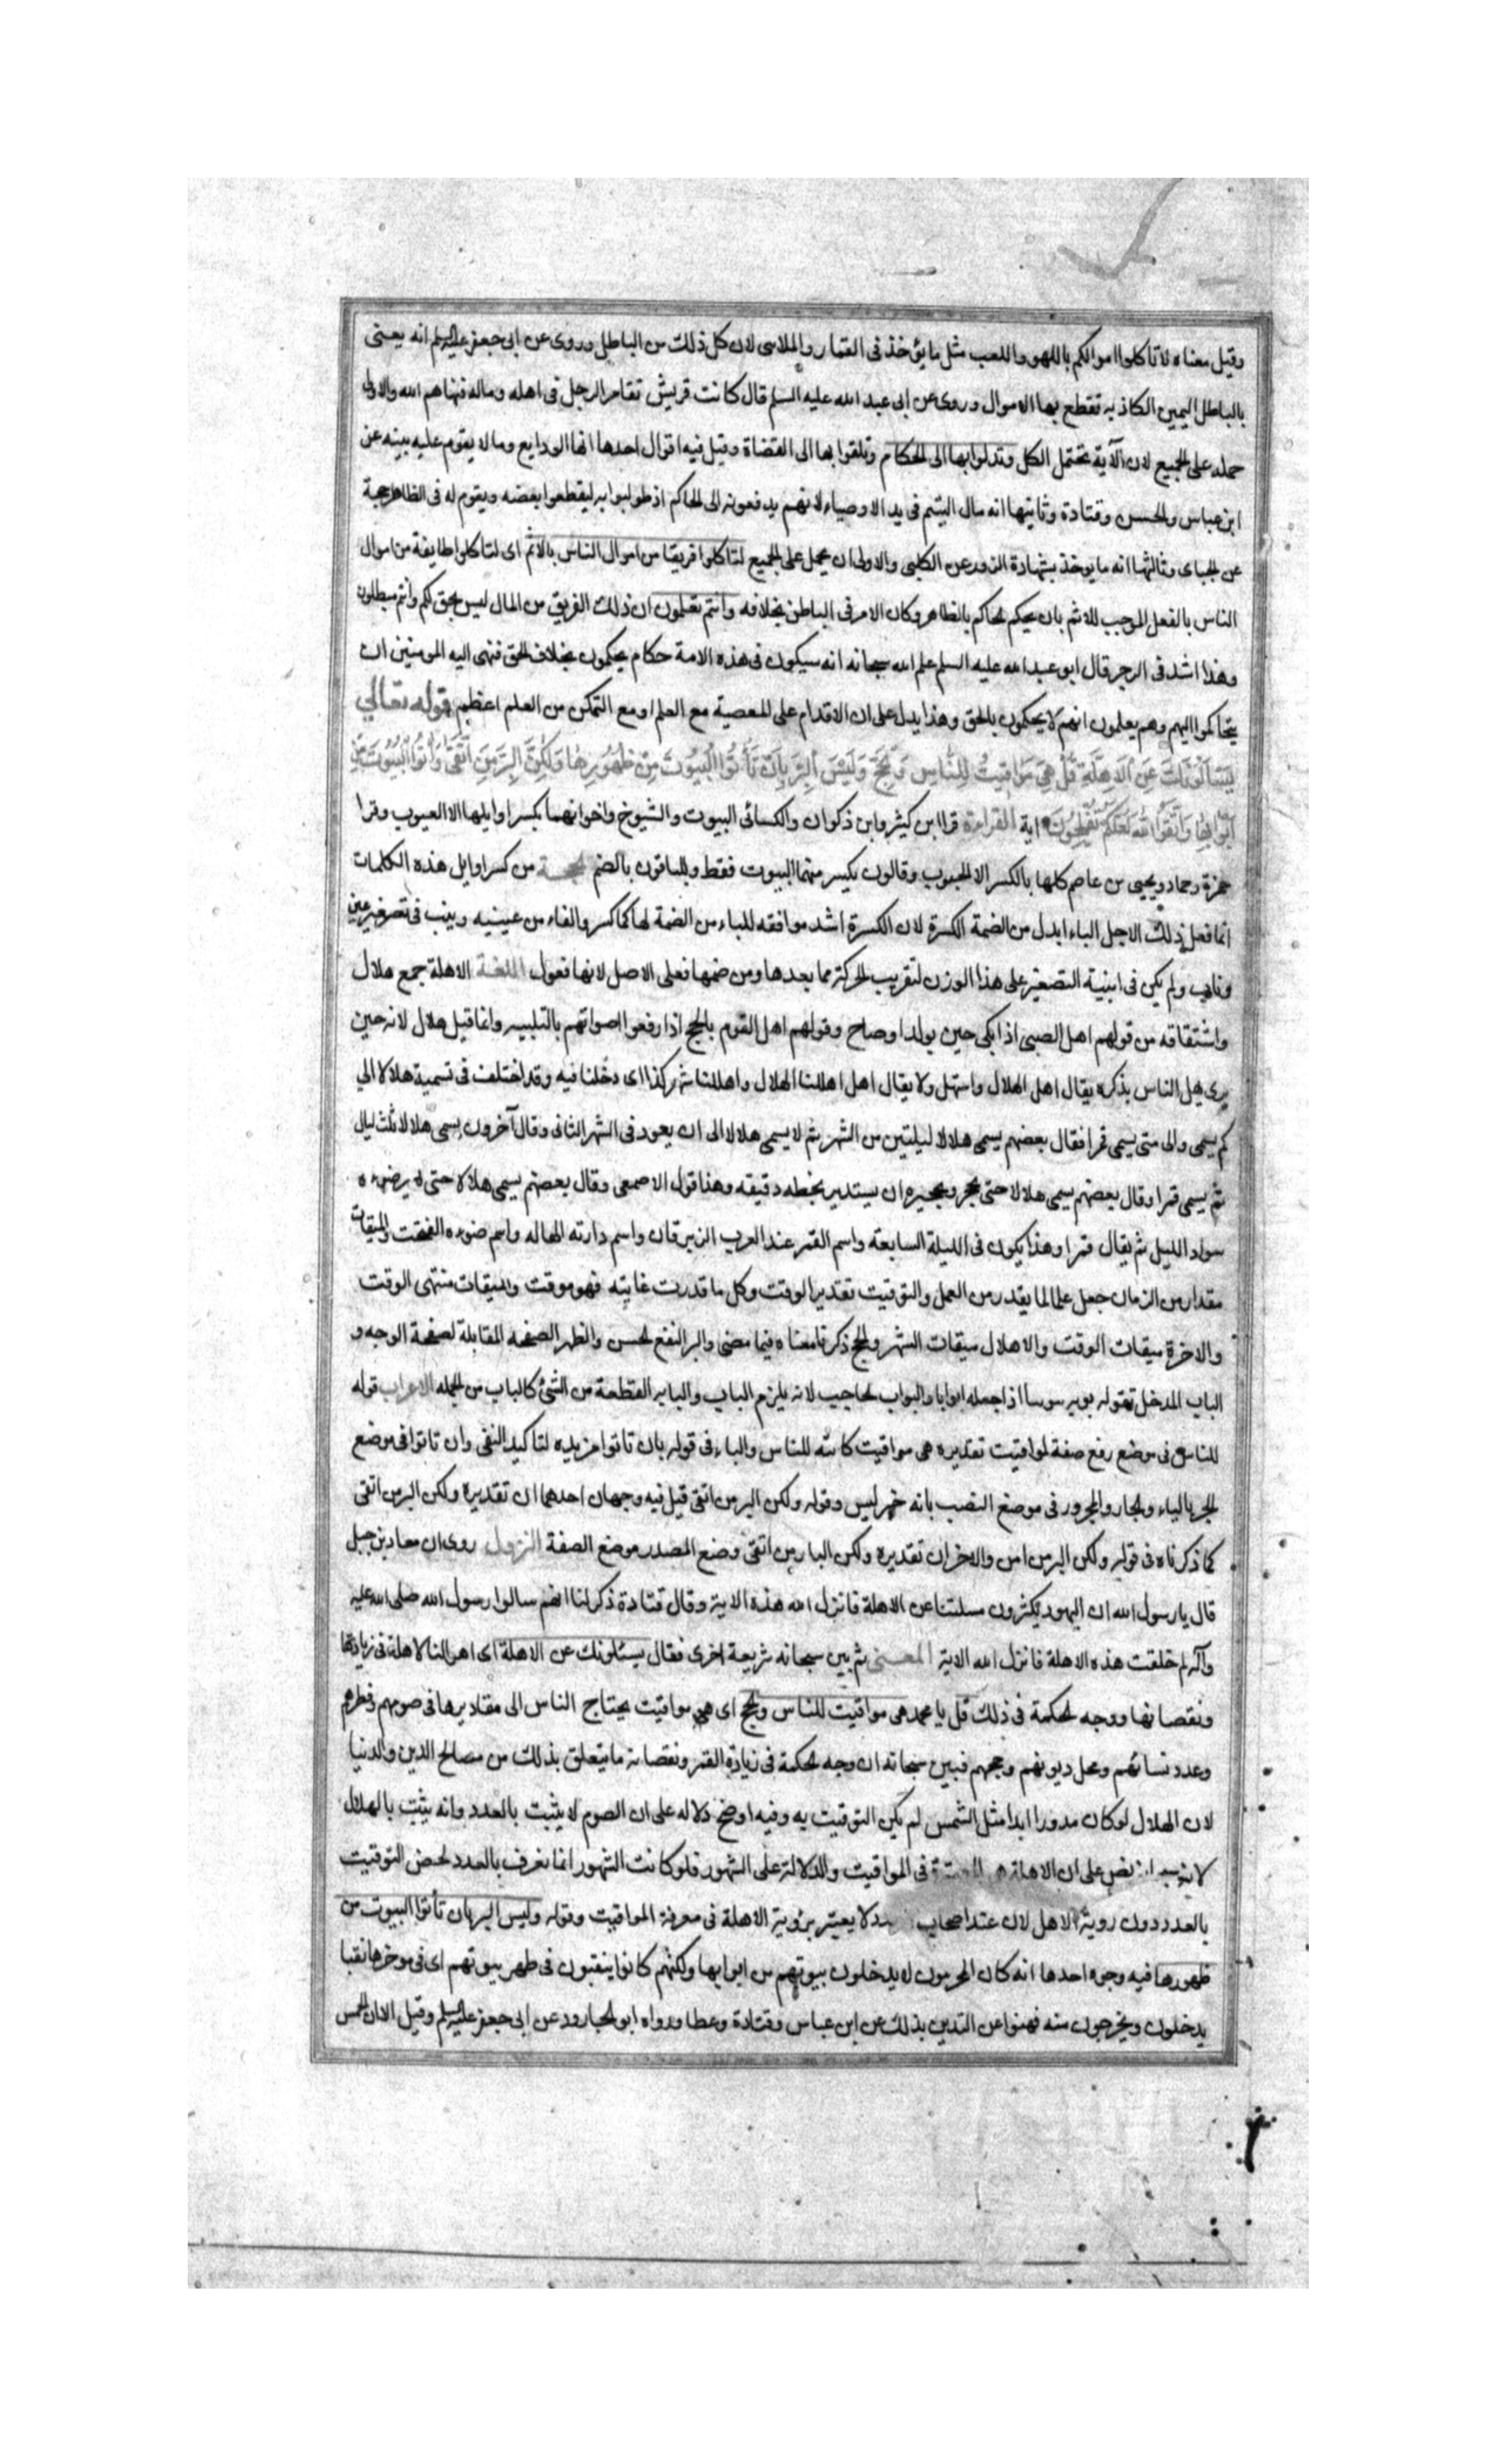 وقيل معناه لا تاكلوا اموالكم باللهو واللعب مثل ما يؤخذ فى القمار والملاهى لان كل ذلك من الباطل وروى عن ابى جعفر عليه السلم انه يعنى
بالباطل اليمين الكاذبه تقطع بها الاموال وروى عن ابى عبد الله عليه السلم قال كانت قريش تقامر الرجل فى اهله وماله فنهاهم الله والاولى
حمله على الجميع لان الآية تحتمل الكل وتدلوا بها الى الحكام وتلقوا بها الى القضاة وقيل فيه اقوال احدها انها الودايع وما لا يقوم عليه بينه عن
ابن عباس والحسن وقتادة وثانيها انه مال اليتيم فى يد الاوصياء لانهم يدفعونه الى الحاكم اذ طولبوا به ليقطعوا بعضه ويقوم له فى الظاهر حجة
عن الجباى وثالثها انه ما يوخذ بشهادة الزور عن الكلبى والاولى ان يحمل على الجميع لتاكلوا فريقا من اموال الناس بالاثم اى لتاكلوا طايفة من اموال
الناس بالفعل الموجب للاثم بان يحكم الحاكم بالظاهر وكان الامر فى الباطن بخلافه وانتم تعلمون ان ذلك الفريق من المال ليس بحق لكم وانتم مبطلون
وهذا اشد فى الزجر قال ابو عبد الله عليه السلم علم الله سبحانه انه سيكون فى هذه الامة حكام يحكمون بخلاف الحق فنهى اليه المومنين ان
يتحاكموا اليهم وهم يعلمون انهم لا يحكمون بالحق وهذا يدل على ان الاقدام على المعصية مع العلم او مع التمكن من العلم اعظم قوله تعالي
يَسْئَالُونَكَ عَنِ اْلاَهِلَّةِ قُلْ هِىَ مَوَاقِيتُ لِلنَّاسِ وَالْحَجِّ وَلَيْسَ الْبِرَّ بِاَنْ تَأْتُوا الْبُيُوتَ مِنْ ظُهُورِهَا وَلَكِنَّ الْبِرَّ مَنِ اتَّقَى وَاْتُوا الْبُيُوتَ مِنْ
اَبْوَابِهَا وَاتَّقُوا اللهَ لَعَلَّكُمْ تُفْلِحُونَ اية القراءة قرا ابن كثير وابن ذكوان والكسائى البيوت والشيوخ واخواتهما بكسر اوايلها الا العيوب وقرا
حمزة وحماد ويحيى عن عاصم كلها بالكسر الا الجيوب وقالون يكسر منهما البيوت فقط والباقون بالضم الحجة من كسر اوايل هذه الكلمات
انما فعل ذلك لاجل الياء ابدل من الضمة الكسرة لان الكسرة اشد موافقه للياء من الضمة لها كما كسروا الفاء من عيينيه وبيت فى تصغير عين
وناب ولم يكن فى ابنية التصغير على هذا الوزن لتقريب الحركة مما بعدها ومن ضمها فعلى الاصل لانها فعول اللغة الاهلة جمع هلال
واشتقاقه من قولهم اهل الصبى اذا بكى حين يولد او صاح وقولهم اهل القوم بالحج اذا رفعوا اصواتهم بالتلبيه وانما قيل هلال لانه حين
يرى يهل الناس بذكره يقال اهل الهلال واستهل ولا يقال اهل اهللنا الهلال واهللنا شهر كذا اى دخلنا فيه وقد اختلف فى تسمية هلالا الي
كم يسمى والى متى يسمى قمرا فقال بعضهم يسمى هلالا ليلتين من الشهر ثم لا يسمى هلالا الى ان يعود فى الشهر الثانى وقال آخرون يسمى هلالا ثلث ليال
ثم يسمى قمرا وقال بعضهم يسمى هلالا حتى يحجر وتحجيره ان يستدير بخطه دقيقه وهذا قول الاصمعى وقال بعضهم يسمى هلالا حتى يبهر ضوءه
سواد الليل ثم يقال قمرا وهذا يكون فى الليلة السابعة واسم القمر عند العرب الزبرقان واسم دارته الهاله واسم ضوءه الفخت والميقات
مقدار من الزمان جعل علما لما يقدر من العمل والتوقيت تقدير الوقت وكل ما قدرت غايته فهو موقت والميقات منتهى الوقت
والاخرة ميقات الوقت والاهلال ميقات الشهر والحج ذكرنا معناه فيما مضى والبر النفع الحسن والظهر الصفحه المقابلة لصفحة الوجه و
الباب المدخل تقوله بوبه اذا جعله ابوابا والبواب الحاجب لانه يلزم الباب والبابه القطعة من الشئ كالباب من الجمله الاعراب قوله
للناس فى موضع رفع صفة لمواقيت تقديره هى مواقيت كاننه للناس والباء فى قوله بان تاتوا مزيده لتاكيد النفى وان تاتوا فى موضع
الجر بالباء والجار والمجرور فى موضع النصب بانه خبر ليس وقوله ولكن البر من اتقى قيل فيه وجهان احدهما ان تقديره ولكن البر من اتقى
كما ذكرناه فى قوله ولكن البر من امن والاخر ان تقديره ولكن البار من اتقى وضع المصدر موضع الصفة النزول روى ان معاذ بن جبل
قال يا رسول الله ان اليهود يكثرون مسلتنا عن الاهلة فانزل الله هذه الاية وقال قتادة ذكر لنا انهم سالوا رسول الله صلى الله عليه
وآله لم خلقت هذه الاهلة فانزل الله الاية المعنى ثم بين سبحانه شريعة اخرى فقال يسئلونك عن الاهلة اى احوال الاهلة فى زيادتها
ونقصانها ووجه الحكمة فى ذلك قل يا محمد هى مواقيت للناس والحج اى هى مواقيت يحتاج الناس الى مقاديرها فى صومهم وفطرهم
وعدد نسائهم ومحل ديونهم وحجهم فبين سبحانه ان وجه الحكمة فى زيادة القمر ونقصانه ما يتعلق بذلك من مصالح الدين والدنيا
لان الهلال لو كان مدورا ابدا مثل الشمس لم يكن التوقيت به وفيه اوضح دلاله على ان الصوم لا يثبت بالعدد وانه يثبت بالهلال
لانه نص على ان الاهلة هى المعتبرة فى المواقيت والدلالة على الشهور فلو كانت الشهور انما تعرف بالعدد لخص التوقيت
بالعدد دون روية الاهل لان عند اصحاب العدد لا يعتبر برؤية الاهلة فى معرفة المواقيت وقوله وليس البر بان تأتوا البيوت من
ظهورها فيه وجوه احدها انه كان المحرمون لا يدخلون بيوتهم من ابوابها ولكنهم كانوا ينقبون فى ظهر بيوتهم اى فى موخرها نقبا
يدخلون ويخرجون منه فنهوا عن التدين بذلك عن ابن عباس وقتادة وعطا ورواه ابو الجارود عن ابى جعفر عليه السلم وقيل الا ان الحمس